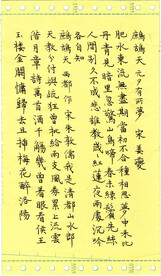 鷓鴣天 元夕有所夢 宋 姜夔
肥水東流無盡期當初不合種相思夢中未比
丹青見暗里忽驚山鳥啼 春未綠鬢先絲
人間別久不成悲誰教歲歲紅蓮夜兩處沉吟
各自知
鷓鴣天 西都作 宋 朱敦儒 我是清都山水郎
天教分付與疏狂曾批給雨支風券累上流雲
借月章 詩萬首酒千觴幾曾着眼看侯王
玉樓金闕慵歸去且插梅花醉洛陽